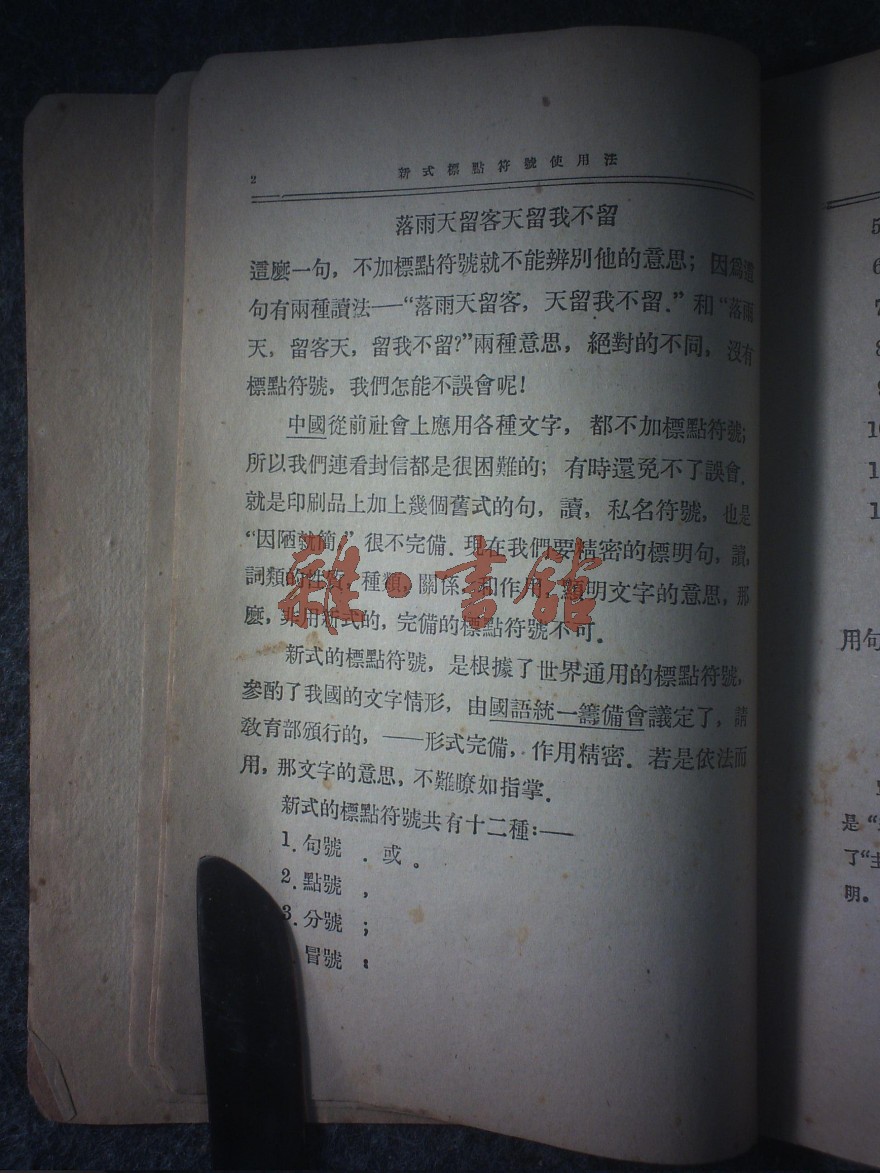 2
新式標點符號使用法
落雨天留客天留我不留
這麼一句，不加標點符號就不能辨別他的意思；因爲這
句有兩種讀法——“落雨天留客，天留我不留.”和“落雨
天，留客天，留我不留?”兩種意思，絕對的不同，沒有
標點符號，我們怎能不誤會呢!
中國從前社會上應用各種文字，都不加標點符號;
所以我們連看封信都是很困難的；有時還免不了誤會.
就是印刷品上加上幾個舊式的句，讀，私名符號，也是
“因陋就簡，”很不完備.現在我們要精密的標明句，讀，
詞類的性質，種類，關係，和作用，顯明文字的意思，那
麼，非用新式的，完備的標點符號不可.
新式的標點符號，是根據了世界通用的標點符號，
參酌了我國的文字情形，由國語統一籌備會議定了，請
敎育部頒行的，——形式完備，作用精密.若是依法而
用，那文字的意思，不難瞭如指掌.
新式的標點符號共有十二種:——
1.句號 .或。
2.點號 ，
3.分號 ;
冒號 :
雜·書館
5
6
7
8
9
10
1
1
用句
是“
了“主
明。